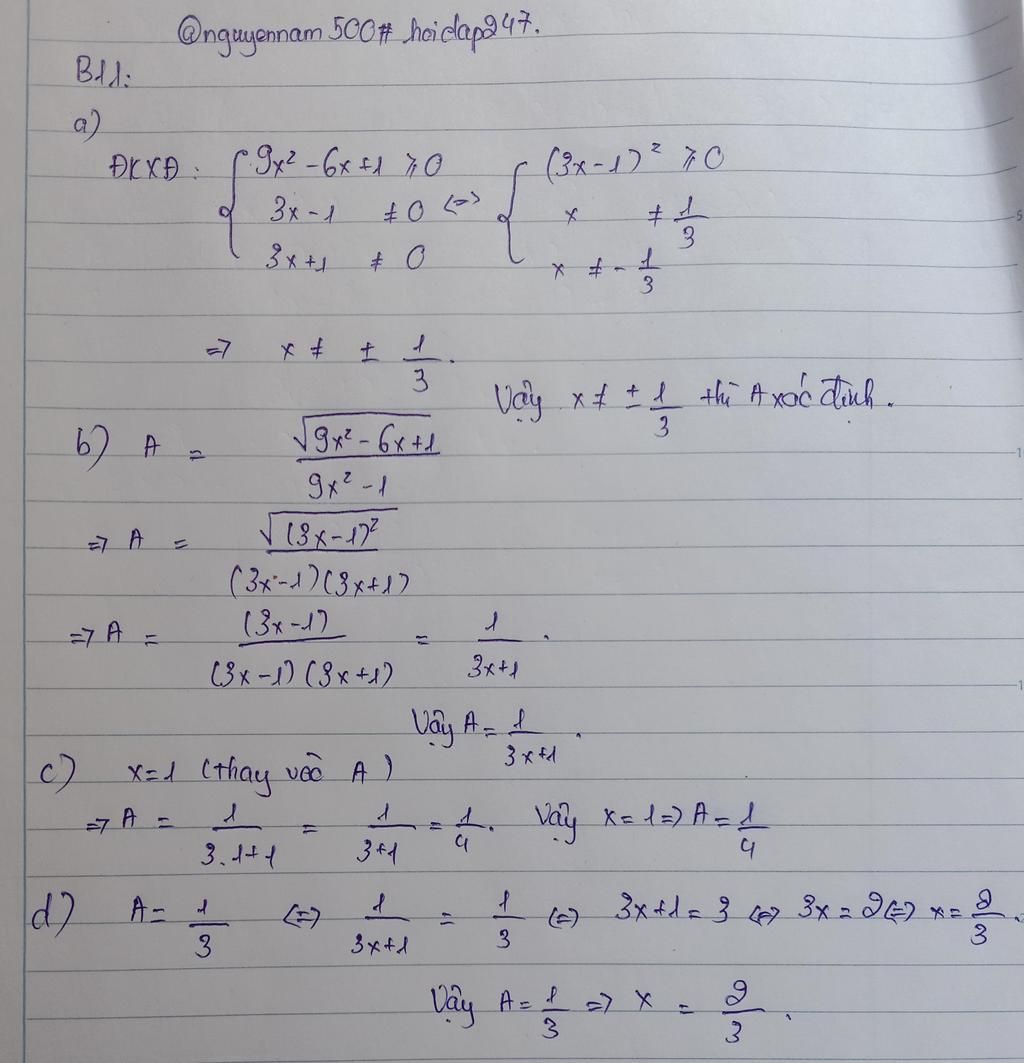 @nguyennam500# hoidap247.
B11:
a)
ĐKXĐ: { 9x² - 6x + 1 ≥ 0 ; 3x - 1 ≠ 0 ; 3x + 1 ≠ 0 <=> { (3x - 1)² ≥ 0 ; x ≠ 1/3 ; x ≠ - 1/3
=> x ≠ ± 1/3.
Vậy x ≠ ± 1/3 thì A xác định.
b) A = √(9x² - 6x + 1) / (9x² - 1)
=> A = √((3x - 1)²) / ((3x - 1)(3x + 1))
=> A = (3x - 1) / ((3x - 1)(3x + 1)) = 1/(3x + 1).
Vậy A = 1/(3x + 1).
c) x = 1 (thay vào A)
=> A = 1/(3.1 + 1) = 1/(3 + 1) = 1/4. Vậy x = 1 => A = 1/4
d) A = 1/3 <=> 1/(3x + 1) = 1/3 <=> 3x + 1 = 3 <=> 3x = 2 <=> x = 2/3.
Vậy A = 1/3 => x = 2/3.